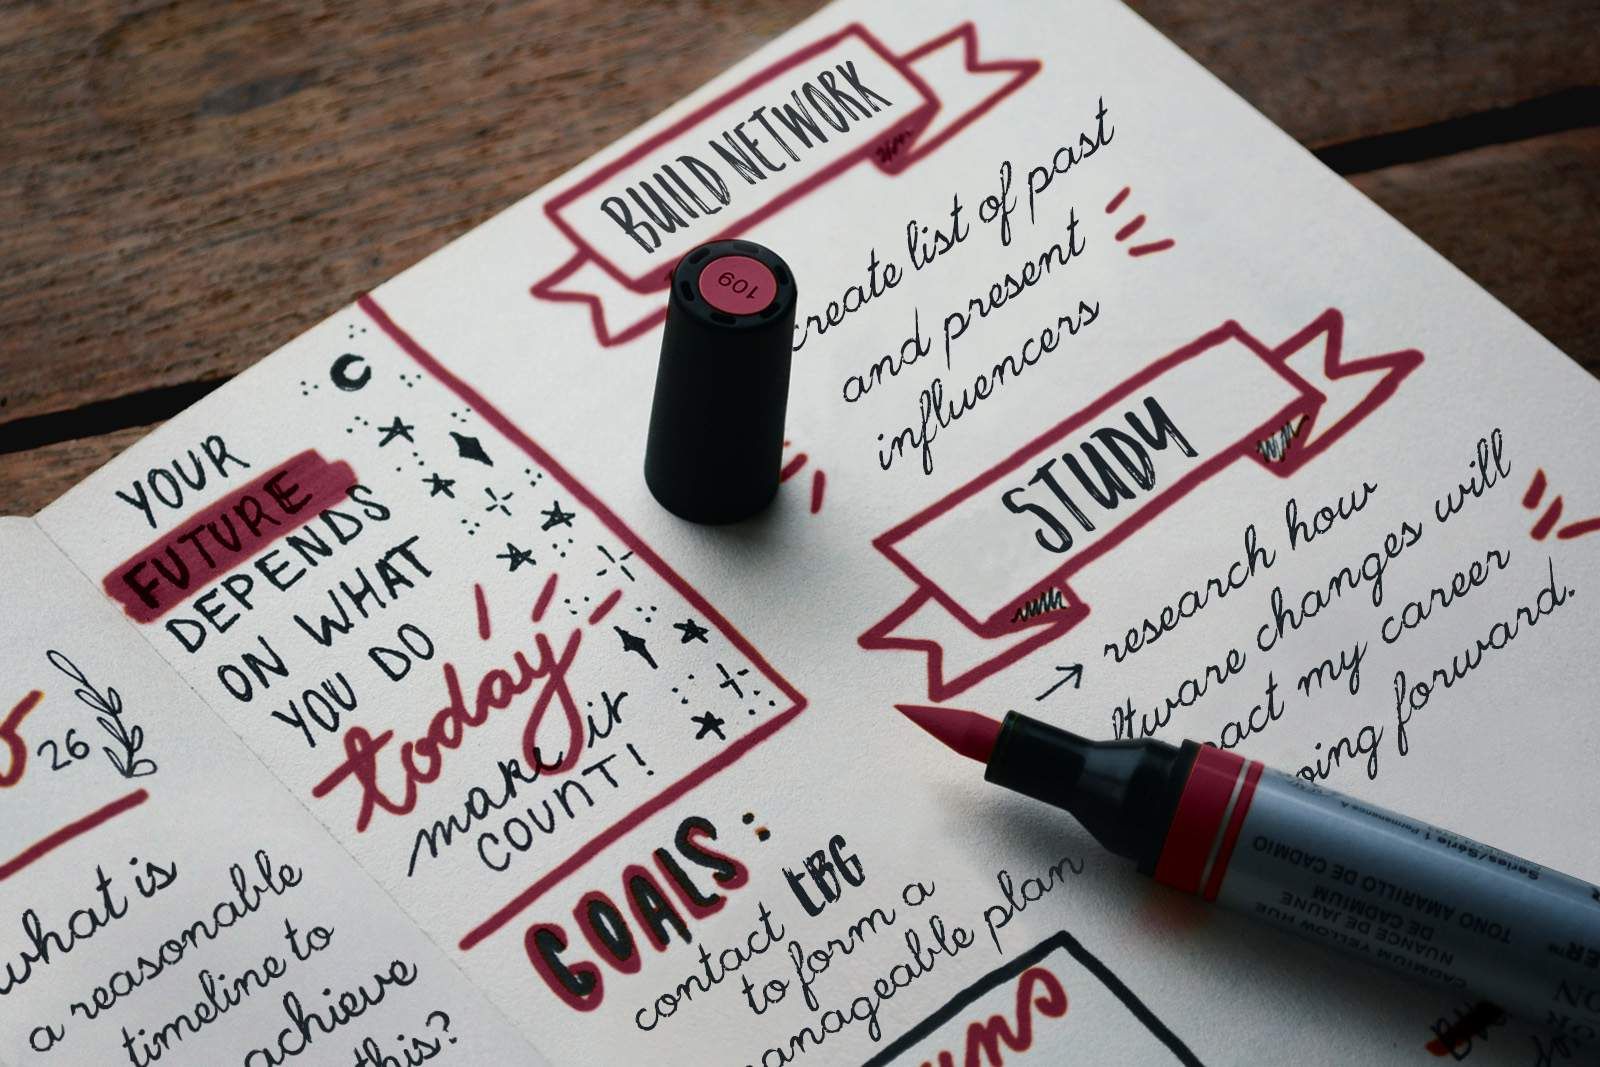 BUILD NETWORK
create list of past
and present
influencers
109
STUDY
research how
ftware changes will
pact my career
oing forward.
YOUR
FUTURE
DEPENDS
ON WHAT
YOU DO
today
make it
COUNT!
26
what is
a reasonable
timeline to
achieve
this?
GOALS:
contact LBG
to form a
manageable plan
Series/Série 1
TONO AMARILLO DE CADMIO
DE CADMIUM
NUANCE DE JAUNE
CADMIUM YELLOW HUE